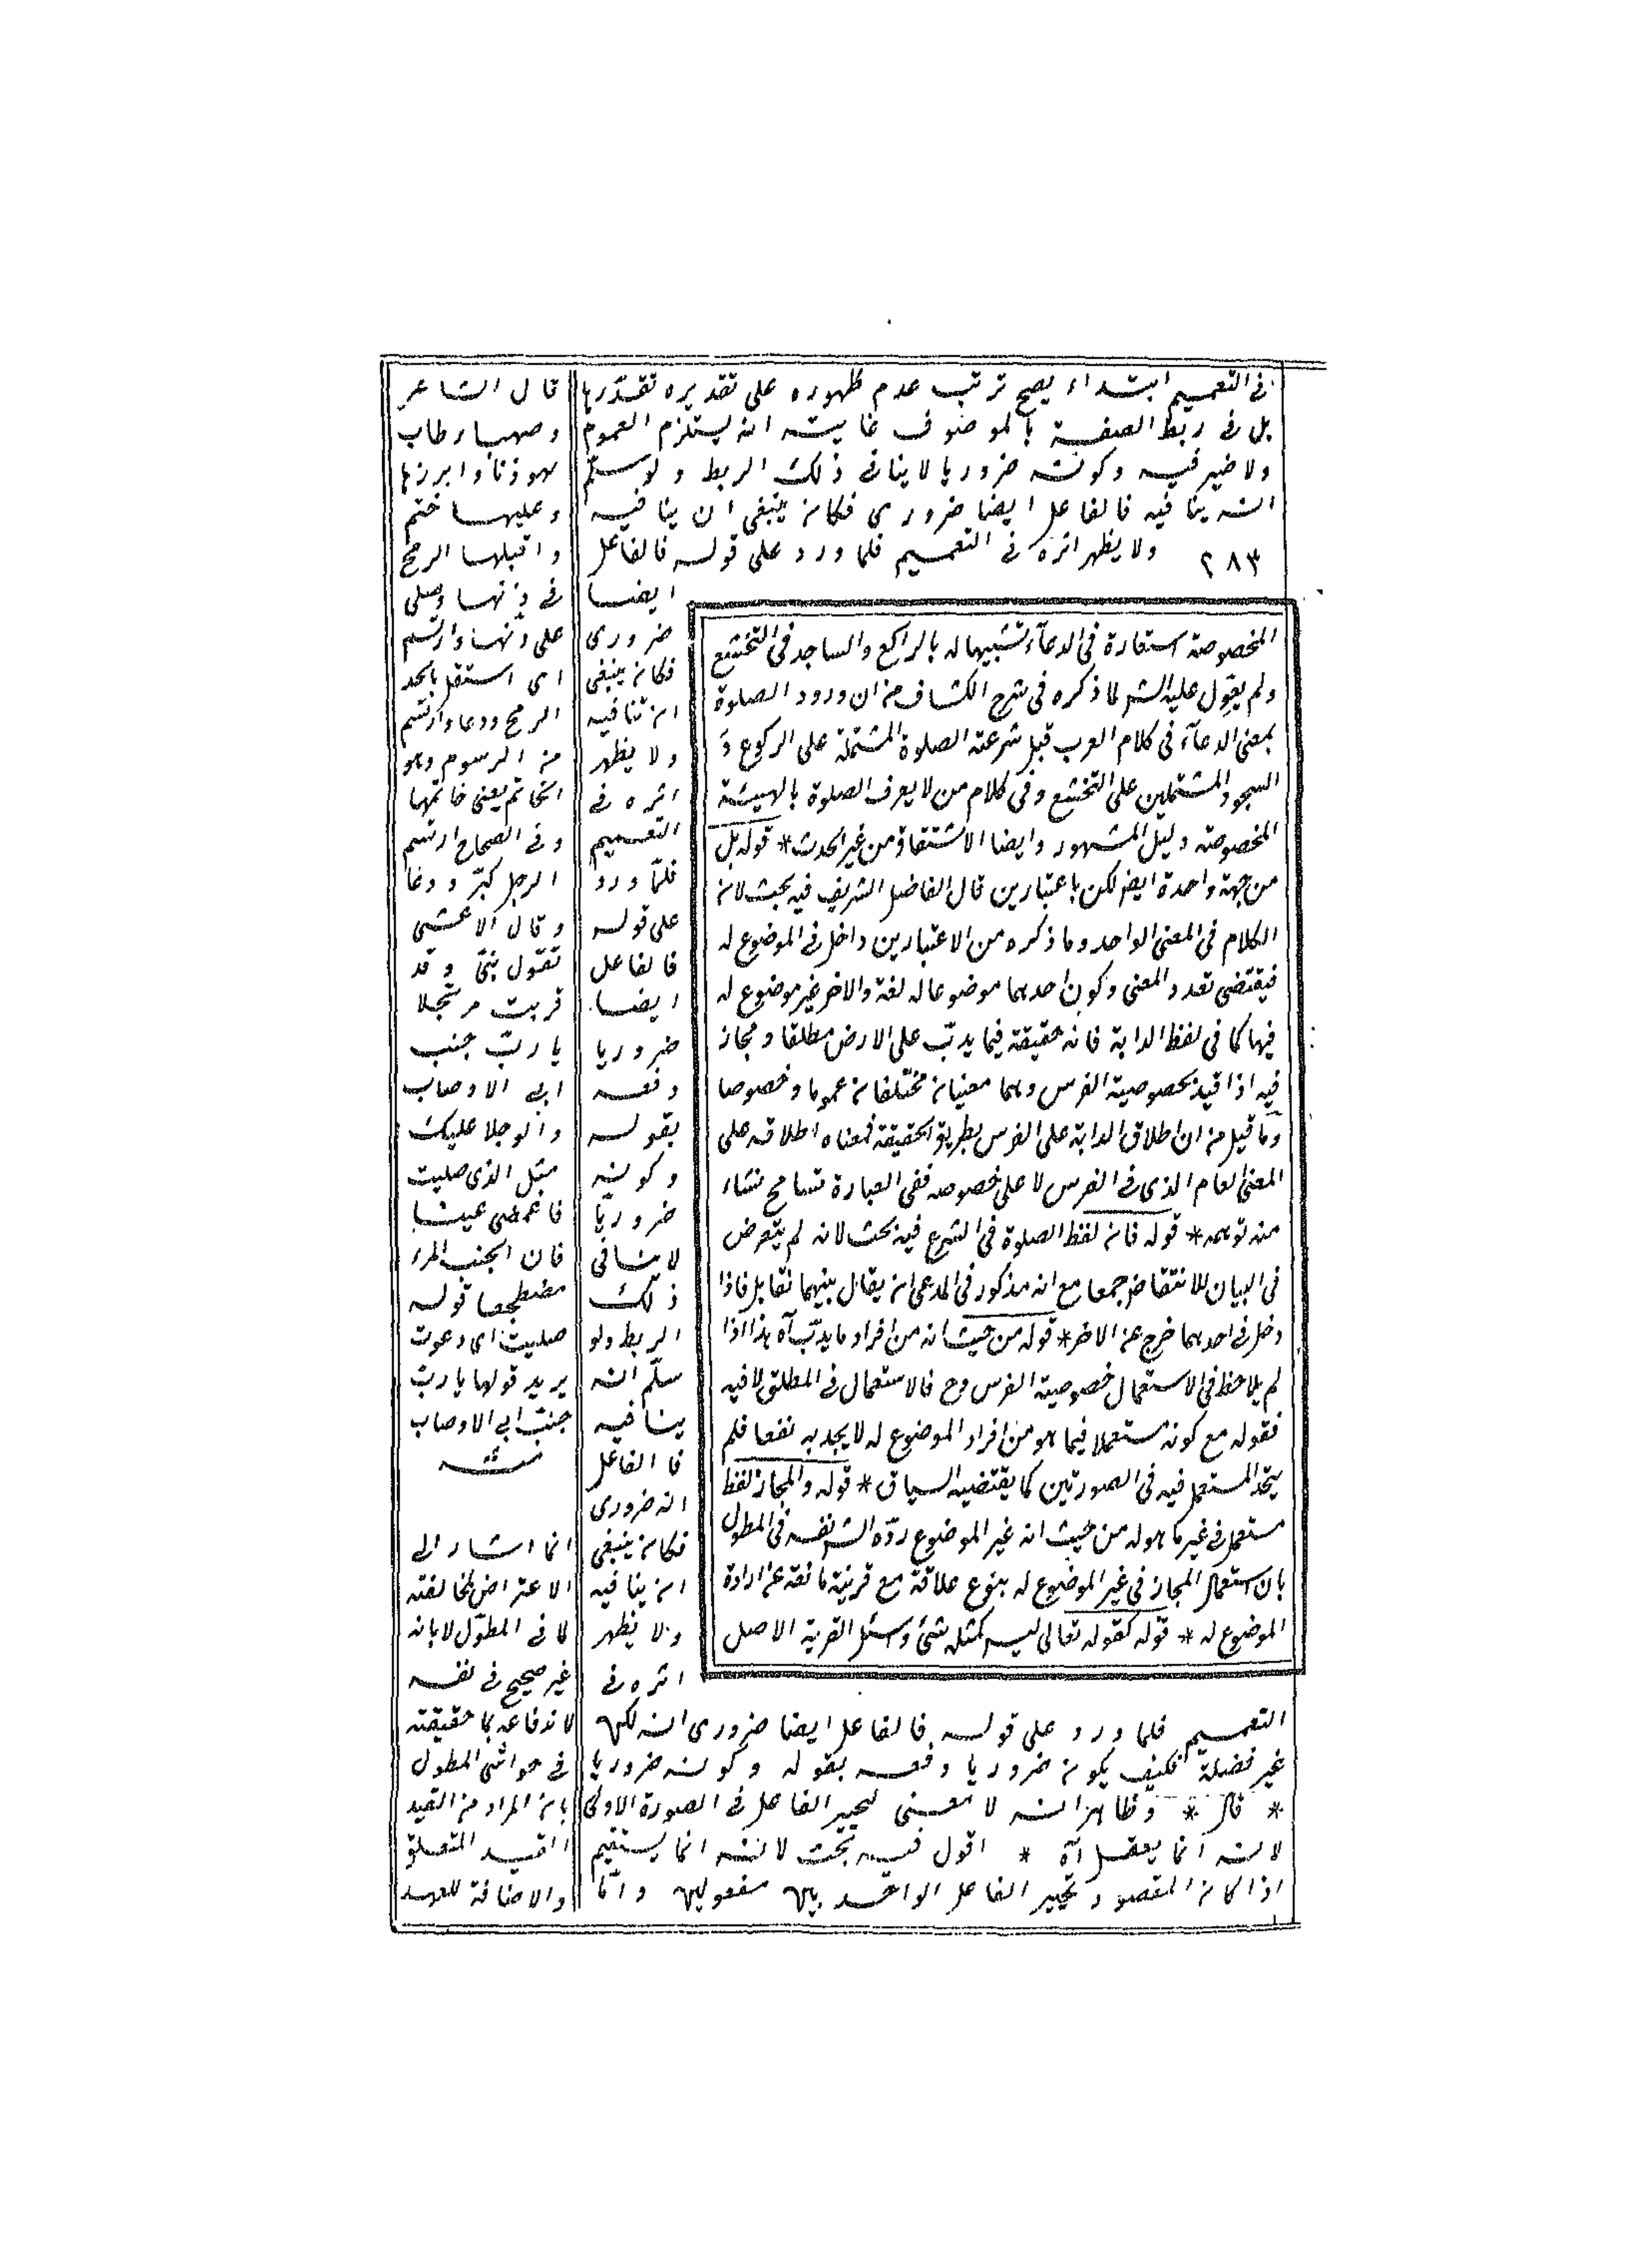 في التعميم ابتداء يصح ترتب عدم ظهوره على تقديره تقدّرها
بل في ربط الصفة بالموصوف غايته انه يستلزم العموم
ولا ضير فيه وكونه ضروريا لا ينافي ذلك الربط ولو سلّم
انه ينافيه فالفاعل ايضا ضروري فكان ينبغي ان ينافيه
٢٨٣ ولا يظهر اثره في التعميم فلما ورد على قوله فالفاعل
ايضا
ضروري
فكان ينبغي
ان تنافيه
ولا يظهر
اثره في
التعميم
فلمّا ورد
على قوله
فالفاعل
ايضا
ضروريا
دفعه
بقوله
وكونه
ضروريّا
لا ينافي
ذلك
الربط ولو
سلّم انه
ينافيه
فا الفاعل
انه ضروري
فكان ينبغي
ان ينافيه
ولا يظهر
اثره في
التعميم فلما ورد على قوله فالفاعل ايضا ضروري انه لكنه
غير فضلة فكيف يكون ضروريا دفعه بقوله وكونه ضروريا
* قال * وظاهر انه لا معنى لتحيير الفاعل في الصورة الاولى
لانه انما يعقل آه * اقول فيه بحث لانه انما يستقيم
اذا كان المقصود تحيير الفاعل الواحد بين مفعولين وامّا
المخصوصة استعارة في الدعآء تشبيها له بالراكع والساجد في التخشع
ولم يعوّل عليه الشر لما ذكره في شرح الكشاف من ان ورود الصلوة
بمعنى الدعآء في كلام العرب قبل شرعية الصلوة المشتملة على الركوع و
السجود المشتملين على التخشع وفي كلام من لا يعرف الصلوة بالهيئة
المخصوصة دليل المشهور وايضا الاشتقاق من غير الحدث * قوله بل
من جهة واحدة ايض لكن باعتبارين قال الفاضل الشريف فيه بحث لان
الكلام في المعنى الواحد وما ذكره من الاعتبارين داخل في الموضوع له
فيقتضي تعدد المعنى وكون احدهما موضوعا له لغة والاخر غير موضوع له
فيها كما في لفظ الدابة فانه حقيقة فيما يدبّ على الارض مطلقا ومجاز
فيه اذا قيد بخصوصية الفرس وهما معنيان مختلفان عموما وخصوصا
وما قيل من ان اطلاق الدابة على الفرس بطريق الحقيقة فمعناه اطلاقه على
المعنى العام الذي في الفرس لا على خصوصه ففي العبارة تسامح نشاء
منه توهمه * قوله فان لفظ الصلوة في الشرع فيه بحث لانه لم يتعرض
في البيان للانتقاض جمعا مع انه مذكور في المدعى ان يقال بينهما تقابل فاذا
دخل في احدهما خرج عن الاخر * قوله من حيث انه من افراد ما يدبّ آه هذا اذا
لم يلاحظ في الاستعمال خصوصية الفرس وح فالاستعمال في المطلق لا فيه
فقوله مع كونه مستعملا فيما هو من افراد الموضوع له لا يجديه نفعا فلم
يتحد المستعمل فيه في الصورتين كما يقتضيه السياق * قوله والمجاز لفظ
مستعمل في غير ما هو له من حيث انه غير الموضوع ردّه الشر نفسه في المطول
بان استعمال المجاز في غير الموضوع له بنوع علاقة مع قرينة مانعة عن ارادة
الموضوع له * قوله كقوله تعالى ليس كمثله شئ واسئل القرية الاصل
قال الشاعر
وصهباء طاف
يهوديّها وابرزها
وعليها ختم
واقبلها الريح
في دنها وصلى
على دنها وارتسم
اي استقبل بالحد
الريح ودعا وارتسم
من الرسوم وهو
الخاتم يعني خاتمها
وفي الصحاح ارتسم
الرجل كبّر ودعا
وقال الاعشى
تقول بنتي وقد
قربت مرتحلا
يا ربّ جنب
ابي الاوصاب
والوجعا عليك
مثل الذي صليت
فاغمضي عينا
فان الجنب المرء
مضطجعا قوله
صليت اي دعوت
يريد قولها يا ربّ
جنب ابي الاوصاب
منه
انما اشار الى
الاعتراض لمخالفته
لما في المطوّل لا بانه
غير صحيح في نفسه
لاندفاعه بما حقيقته
في حواشي المطول
بان المراد من القيد
القيد المتعلق
والاضافة للعهد